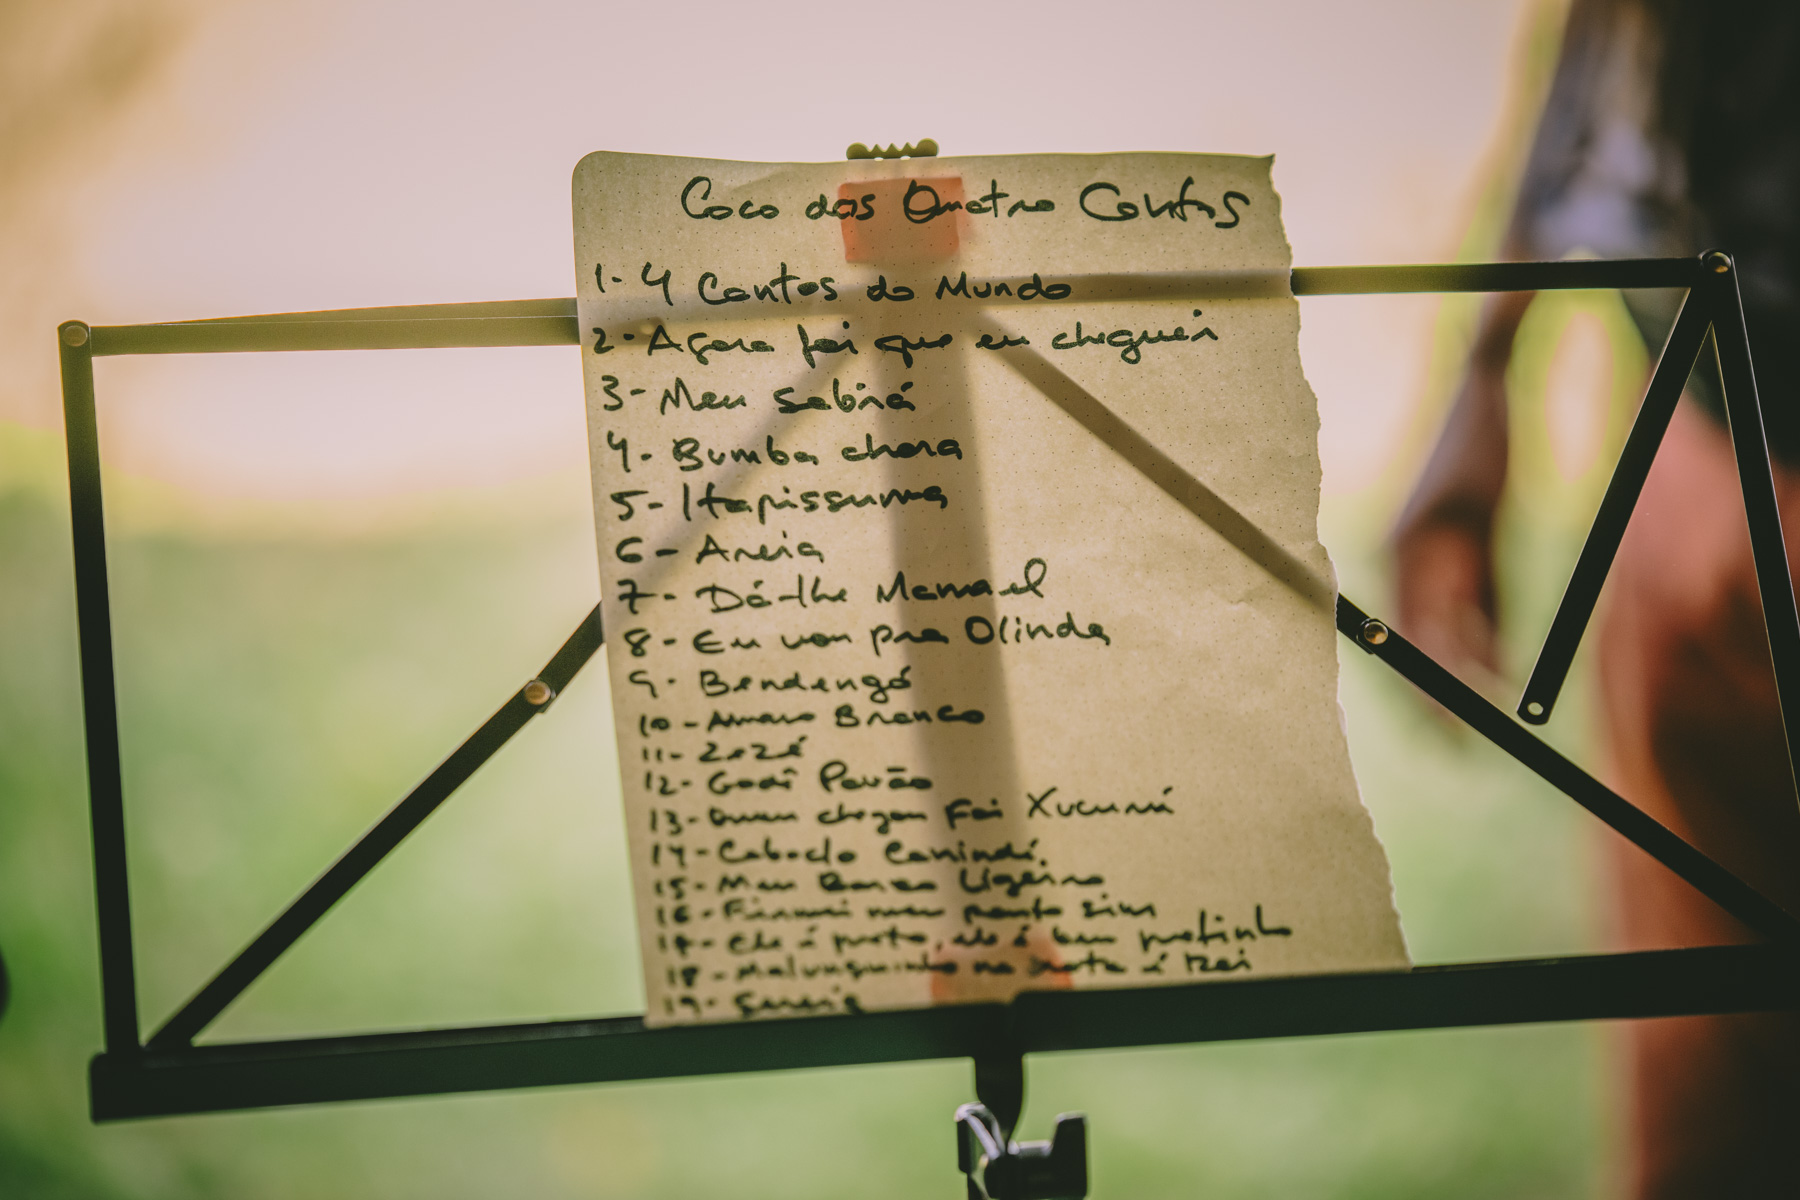 Coco dos Quatro Cantos
1- 4 Cantos do Mundo
2- Agora foi que eu cheguei
3- Meu sabiá
4- Bumba chora
5- Itapissuma
6- Areia
7- Dá-lhe Manoel
8- Eu vou pra Olinda
9- Bendengó
10- Amaro Branco
11- Zezé
12- Pavão
13- Quem chegou foi Xucurú
14- Caboclo Canindé
15- Meu Barco Ligeiro
16- Firmei meu ponto sim
17- Ele é preto, ele é bem pretinho
18- Malunguinho na mata é Rei
19- Sereia